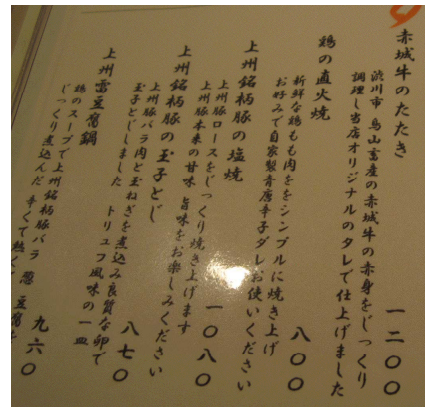 赤城牛のたたき
渋川市 鳥山畜産の赤城牛の赤身をじっくり
調理し当店オリジナルのタレで仕上げました
一二〇〇
鶏の直火焼
新鮮な鶏もも肉をシンプルに焼き上げ
お好みで自家製青唐辛子ダレお使いください
八〇〇
上州銘柄豚の塩焼
上州豚ロースをじっくり焼き上げます
上州豚本来の甘味 旨味をお楽しみください
一〇八〇
上州銘柄豚の玉子とじ
上州豚バラ肉と玉ねぎを煮込み良質な卵で
玉子とじしました トリュフ風味の一皿
八七〇
上州雷豆腐鍋
鶏のスープで上州銘柄豚バラ 葱 豆腐を
じっくり煮込んだ 辛くて熱く
九六〇